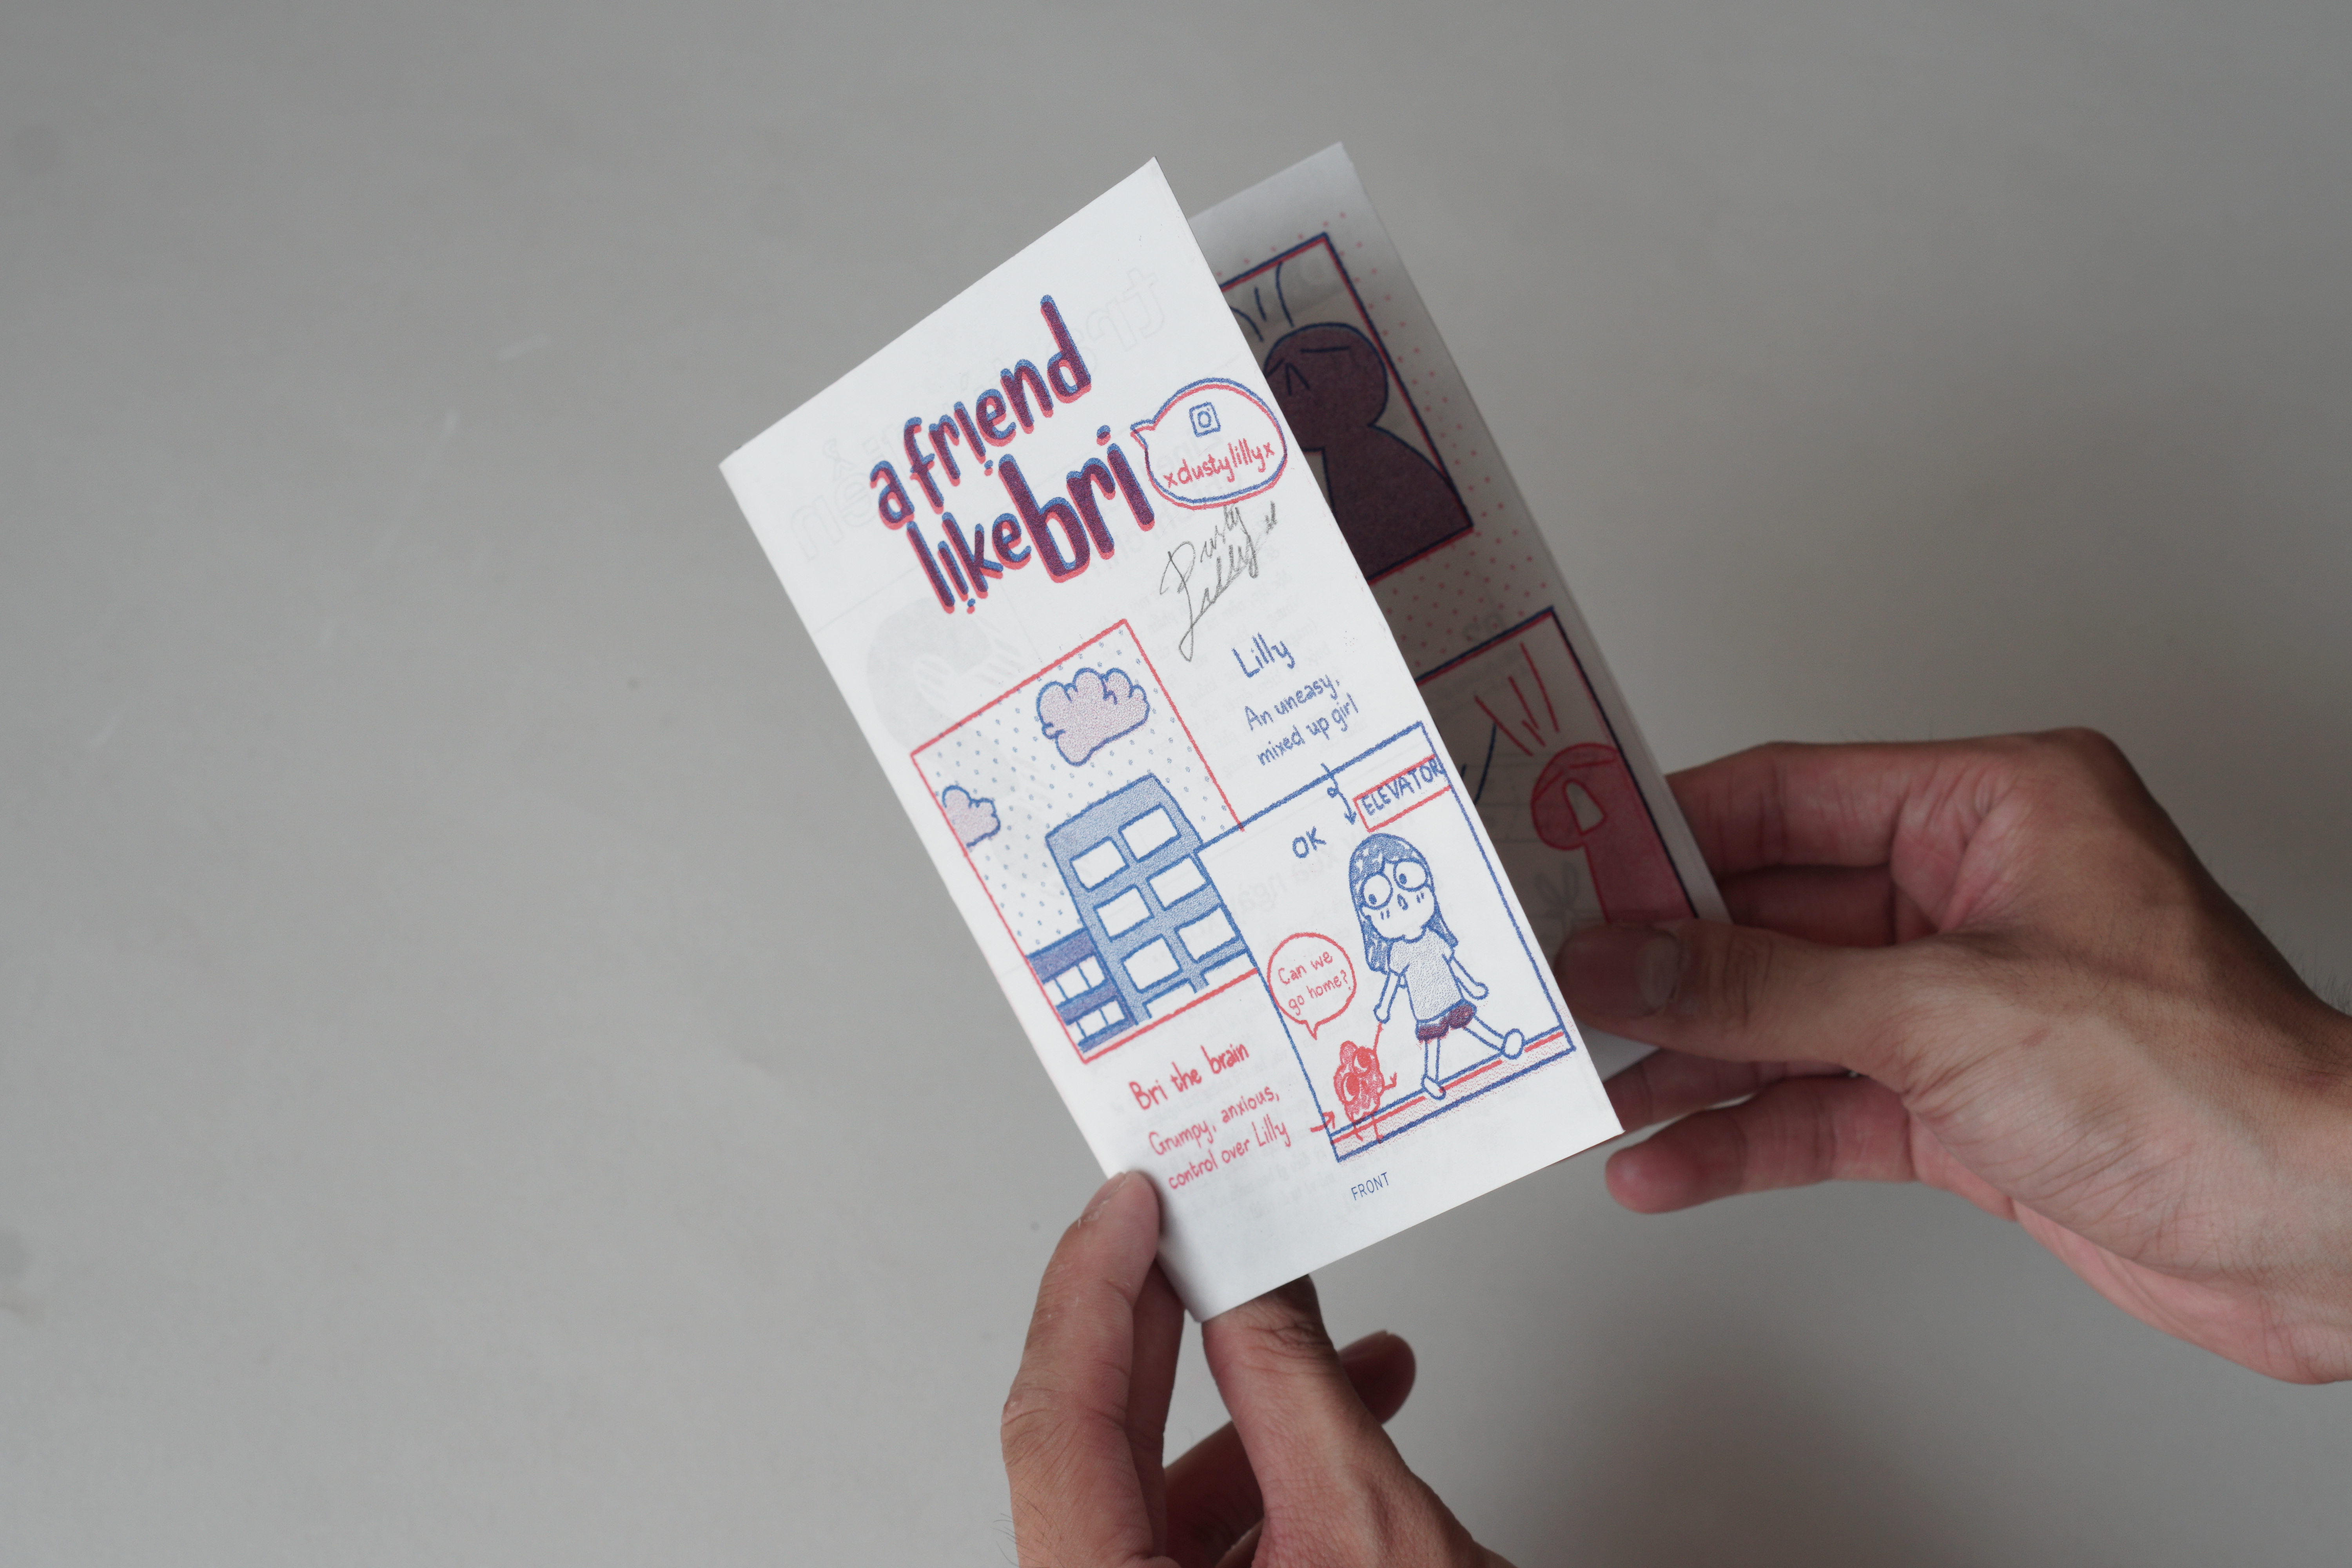 a friend
like bri
xdustylillyx
Dusty
Lilly x
Lilly
An uneasy,
mixed up girl
ELEVATOR
OK
Can we
go home?
Bri the brain
Grumpy, anxious,
control over Lilly
FRONT